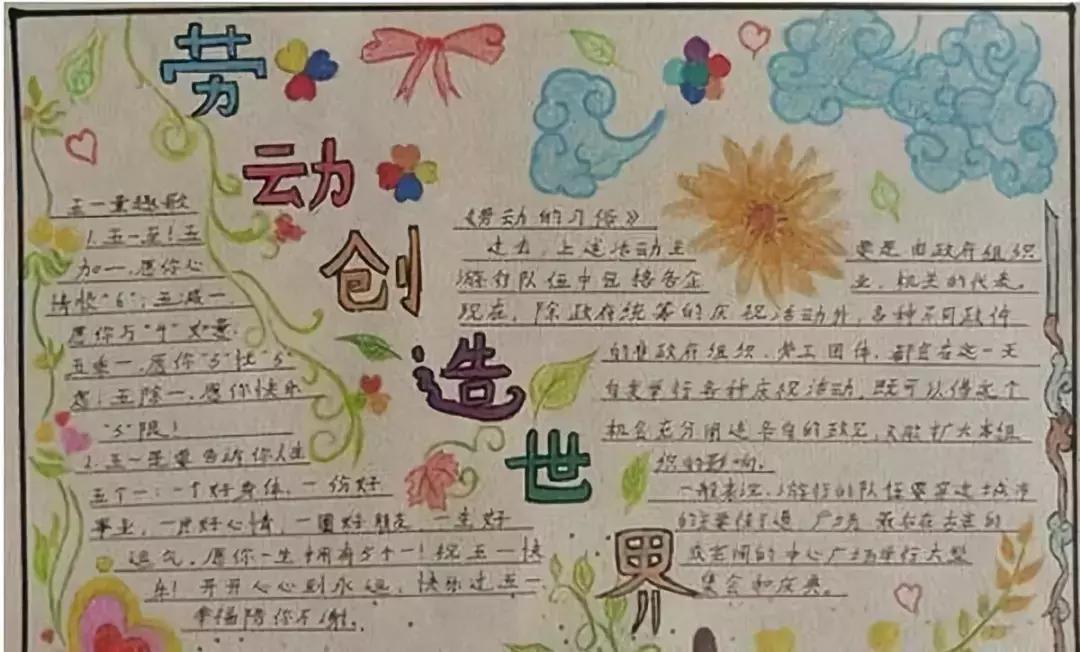 劳动创造世界
五一童趣歌
1.五一至!五
加一,愿你心
情快"6";五减一,
愿你与"4"
五乘一,愿你"5"快"5"
五除一,愿你快乐
"5"限!
2.五一是要告诉你人生
五个一:一个好身体,一份好
事业,一片好心情,一圈好朋友,一生好
运气。愿你一生拥有5个一!祝五一快
乐!开开心心到永远,快乐过五一
幸福陪你不谢。
《劳动的习俗》
过去,上述活动主要是由政府组织
游行队伍中包括各企业、机关的代表。
现在,除政府统筹的庆祝活动外,各种不同政
的非政府组织、劳工团体,都宜在这一天
自发举行各种庆祝活动,既可以借这个
机会充分阐述各自的政见,又能扩大本组
织的影响。
一般来说,游行的队伍要穿过城市
的主要街道、广场,最后在
空间的中心广场举行大型
集会和庆典。